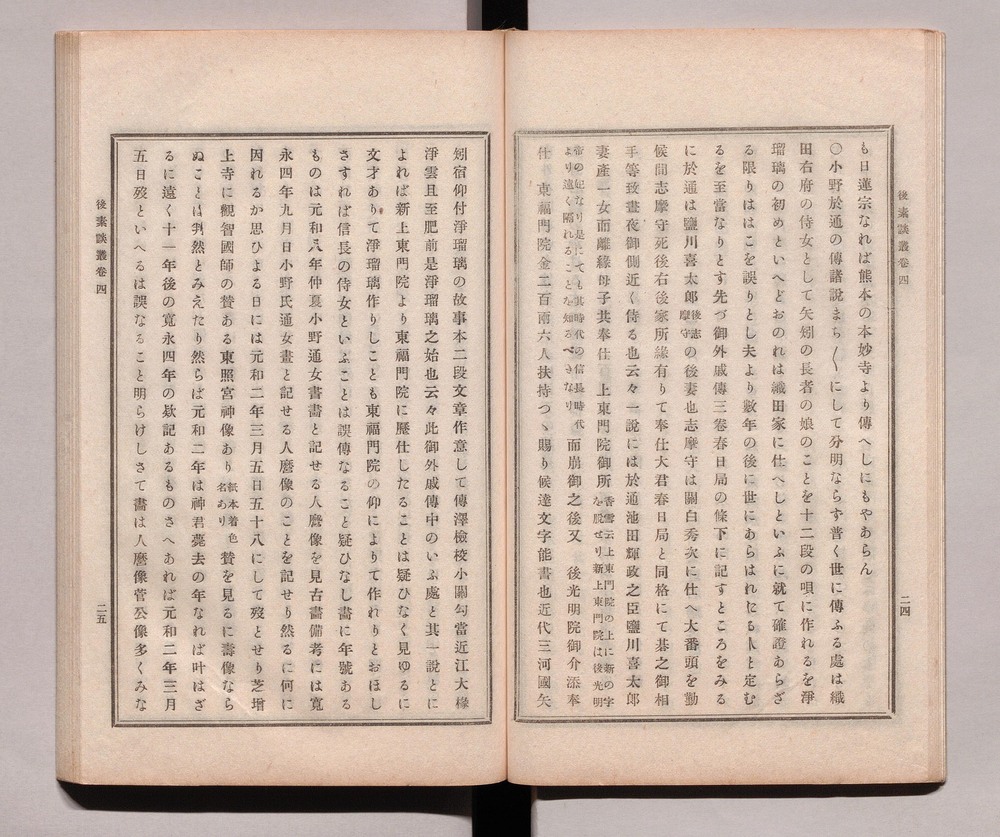 後素談叢卷四
二四
も日蓮宗なれば熊本の本妙寺より傳へしにもやあらん
〇小野於通の傳諸説まち〱にして分明ならす普く世に傳ふる處は織
田右府の侍女として矢矧の長者の娘のことを十二段の唄に作れるを淨
瑠璃の初めといへどおのれは織田家に仕へしといふに就て確證あらざ
る限りははこを誤りとし夫より數年の後に世にあらはれたる人と定む
るを至當なりとす先づ御外戚傳三卷春日局の條下に記すところをみる
に於通は鹽川喜太郎後志摩守の後妻也志摩守は關白秀次に仕へ大番頭を勤
候間志摩守死後右後家所緣有りて奉仕大君春日局と同格にて碁之御相
手等致晝夜御側近く侍る也云々一説には於通池田輝政之臣鹽川喜太郎
妻產一女而離緣母子共奉仕 上東門院御所香雪云上東門院の上に新の字を脫せり新上東門院は後光明
帝の妃なり是にても其時代の信長時代より遠く隔れることを知るべきなり而崩御之後又 後光明院御介添奉
仕 東福門院金二百兩六人扶持つゝ賜り候達文字能書也近代三河國矢
矧宿仰付淨瑠璃の故事本二段文章作意して傳澤檢校小關勾當近江大椽
淨雲且至肥前是淨瑠璃之始也云々此御外戚傳中のいふ處と其一説とに
よれば新上東門院より東福門院に歷仕したることは疑ひなく見ゆるに
文才ありて淨瑠璃作りしことも東福門院の仰によりて作れりとおほし
さすれば信長の侍女といふことは誤傳なること疑ひなし畵に年號ある
ものは元和八年仲夏小野通女書畵と記せる人麿像を見古畵備考には寬
永四年九月日小野氏通女畵と記せる人麿像のことを記せり然るに何に
因れるか思ひよる日には元和二年三月五日五十八にして歿とせり芝增
上寺に觀智國師の賛ある東照宮神像あり紙本着色名あり賛を見るに壽像なら
ぬことは判然とみえたり然らば元和二年は神君薨去の年なれば叶はざ
るに遠く十一年後の寬永四年の欵記あるものさへあれば元和二年三月
五日歿といへるは誤なること明らけしさて畵は人麿像菅公像多くみな
後素談叢卷四
二五